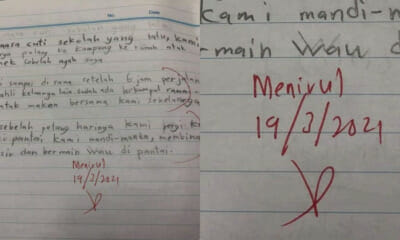 No.
Date
masa cuti sekolah yang lalu, kami
pulang ke kampung ke rumah atuk
nenek sebelah ayah saya
sampai di sana setelah 6 jam perjalan
ahli keluarga lain sudah ada berkumpul ramai-
atuk makan bersama kami sekeluarga
sebelah petang harinya kami pergi ke
pantai. Kami mandi-manda, membina
sir dan bermain wau di pantai.
Menirul
19/3/2021
kami mandi-n
-main wau d
Menirul
19/3/2021